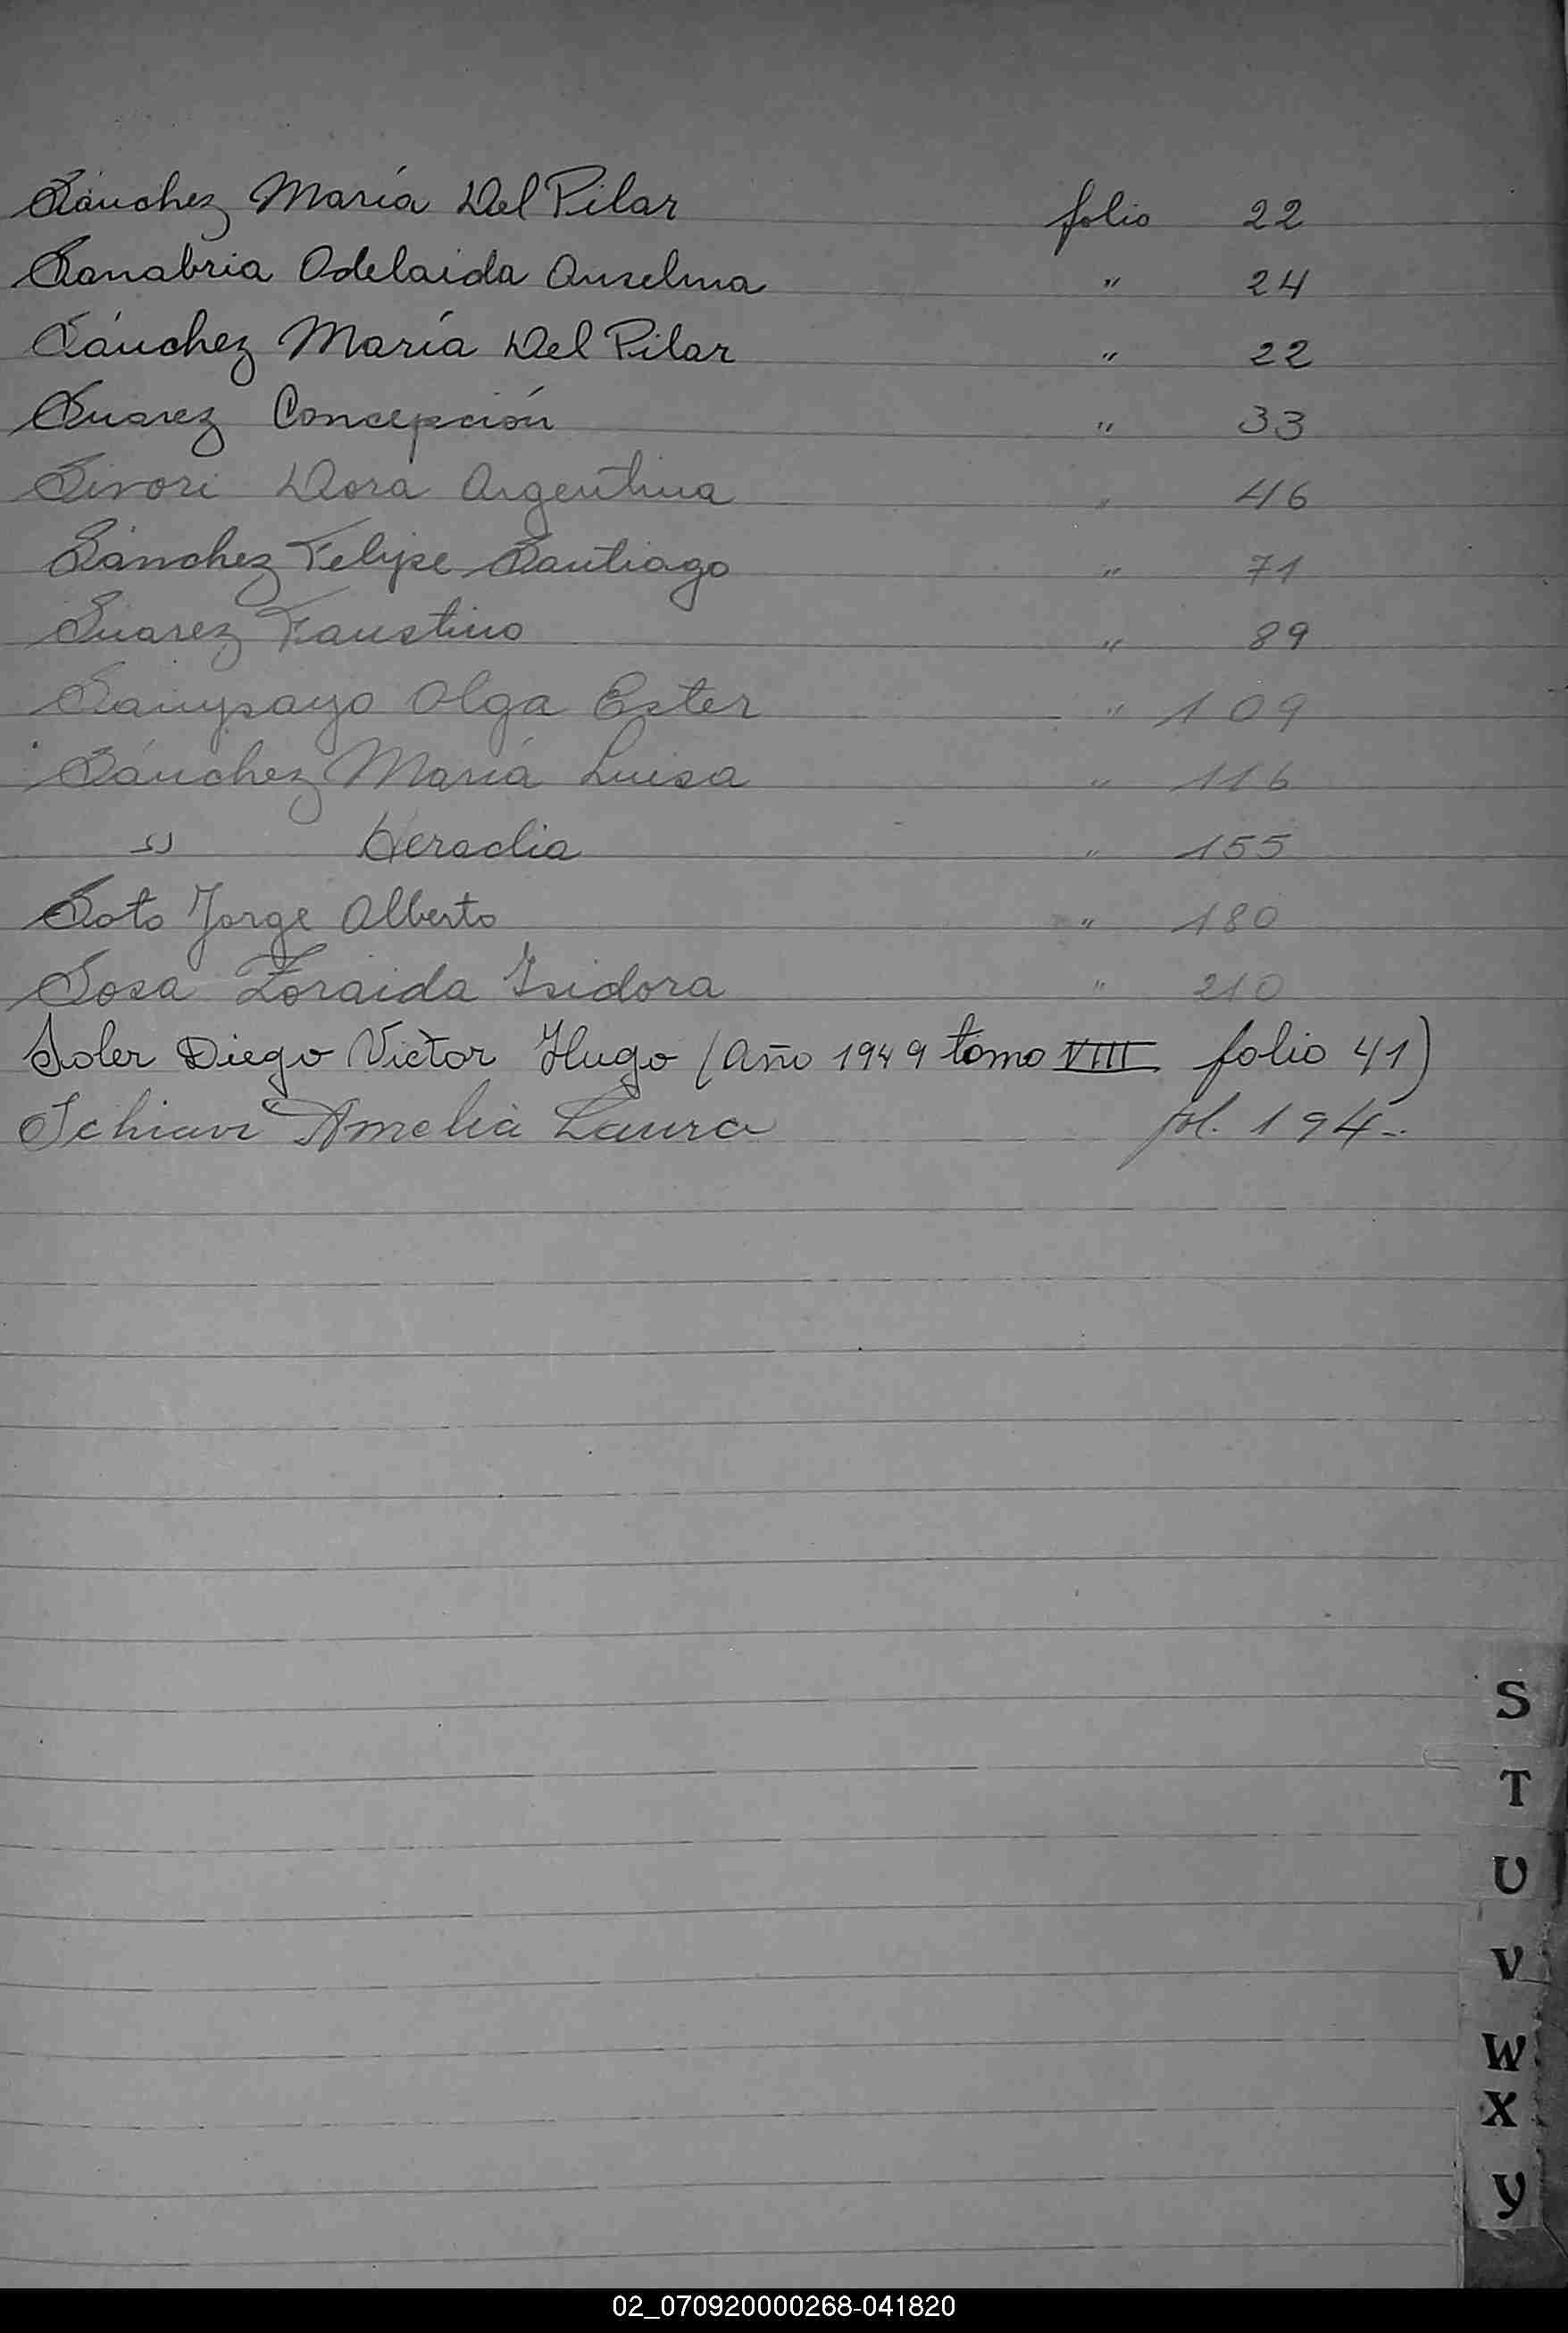 Sánchez María Del Pilar folio 22
Sanabria Adelaida Anselma " 24
Sánchez María Del Pilar " 22
Suarez Concepción " 33
Sivori Dora Argentina " 46
Sánchez Felipe Santiago " 71
Suarez Faustino " 89
Sampayo Olga Ester " 109
Sánchez María Luisa " 116
" Heraclia " 155
Soto Jorge Alberto " 180
Sosa Zoraida Isidora " 210
Soler Diego Victor Hugo (Año 1949 tomo VIII folio 41)
Schiavi Amelia Laura fol. 194..
S
T
U
V
W
X
Y
02_070920000268-041820